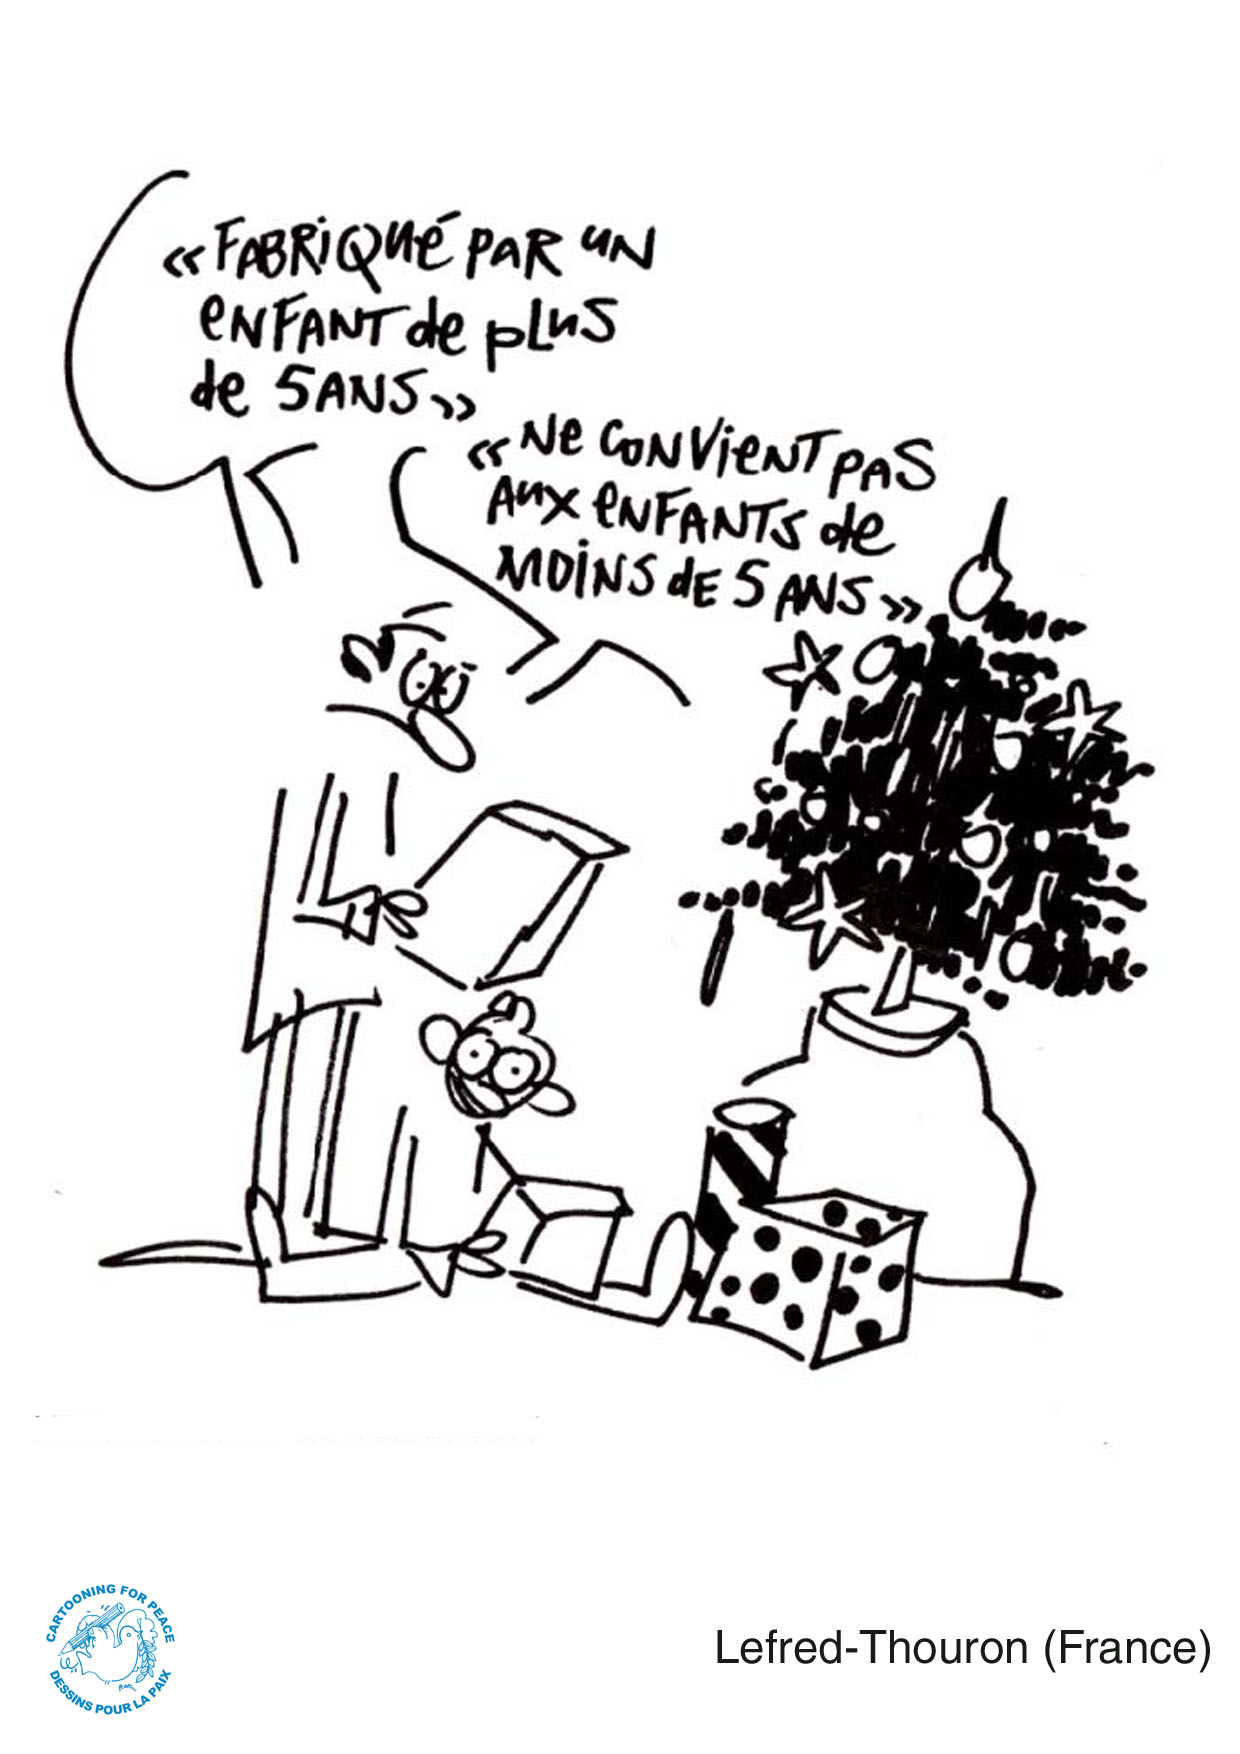 « FABRIQUÉ PAR UN
ENFANT de plus
de 5 ANS »
« Ne CONVIENT PAS
AUX ENFANTS de
MOINS de 5 ANS »
CARTOONING FOR PEACE
DESSINS POUR LA PAIX
Lefred-Thouron (France)